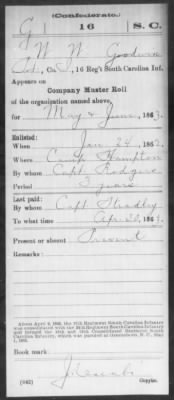 (Confederate.)
G 16 S. C.
W W Goodwin
Pvt, Co. G, 16 Reg't South Carolina Inf.
Appears on
Company Muster Roll
of the organization named above,
for May & June, 1863.
Enlisted:
When Jan 24, 1862.
Where Camp Hampton
By whom Capt Rodgers
Period 3 years
Last paid:
By whom Capt Stradley
To what time Apr 30, 1863.
Present or absent Present
Remarks:
About April 9, 1865, the 16th Regiment South Carolina Infantry
was consolidated with the 24th Regiment South Carolina Infantry
and formed the 16th and 24th Consolidated Regiment South
Carolina Infantry, which was paroled at Greensboro, N. C., May
1, 1865.
Book mark:
(642) Copyist.